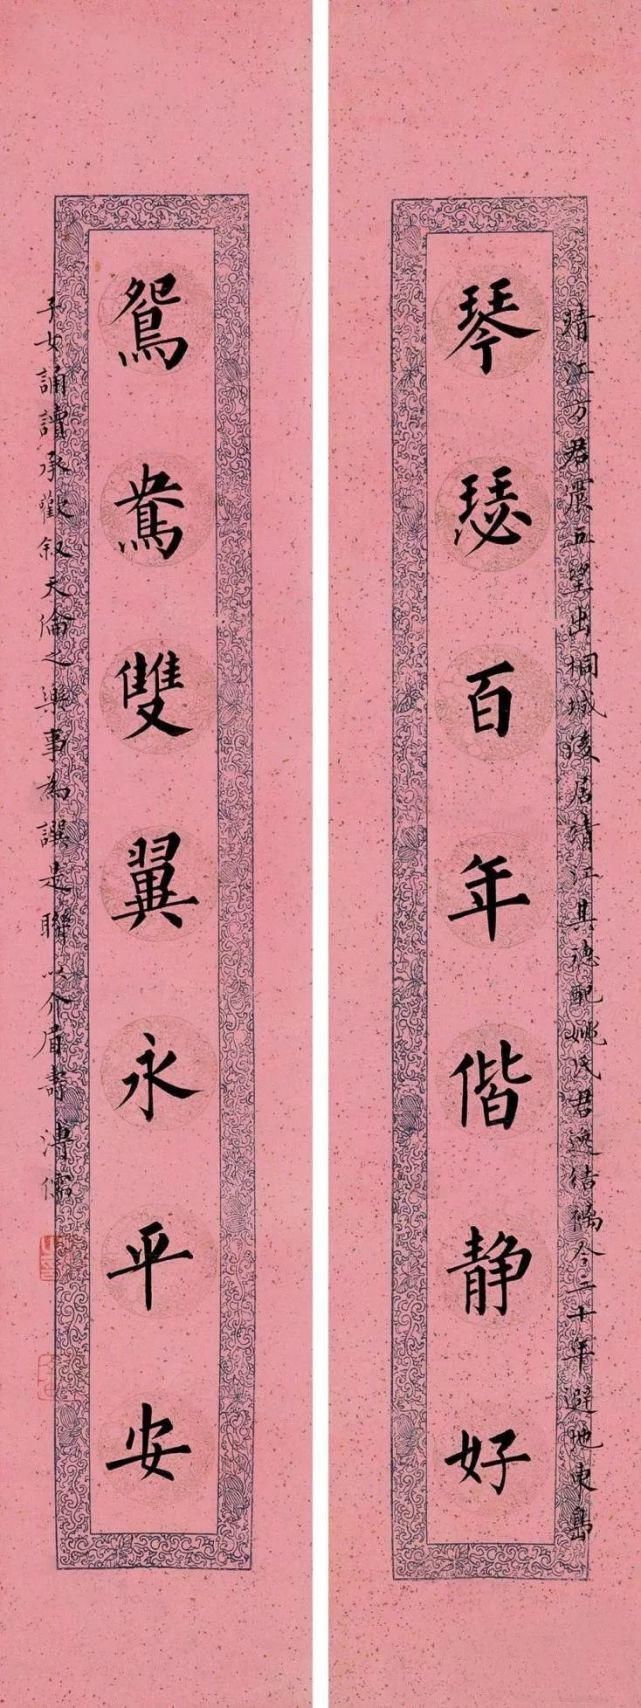 琴瑟百年偕静好
靖江方君震五望出桐城後居靖江其德配姚氏君逸结褵今二十年避地東島
鴛鴦雙翼永平安
子女誦讀承歡叙天倫之樂事為譔是聯以介眉壽 溥儒